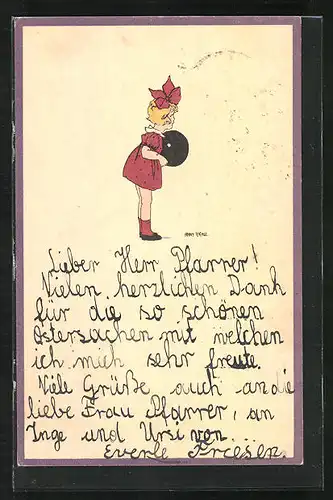 Lieber Herr Pfarrer!
Vielen herzlichen Dank
für die so schönen
Ostersachen mit welchen
ich mich sehr freute.
Viele Grüße auch an die
liebe Frau Pfarrer, an
Inge und Ursi von
Everle Friesen